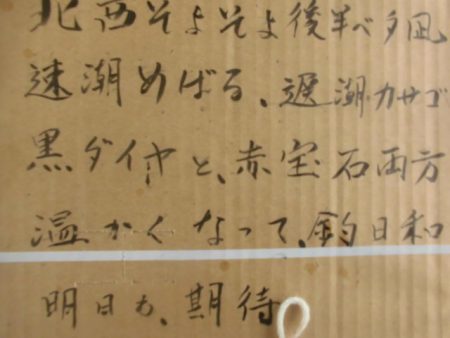 北西そよそよ後半ベタ凪
速潮めばる、遅潮カサゴ
黒ダイヤと、赤宝石両方
温かくなって、釣日和
明日も、期待